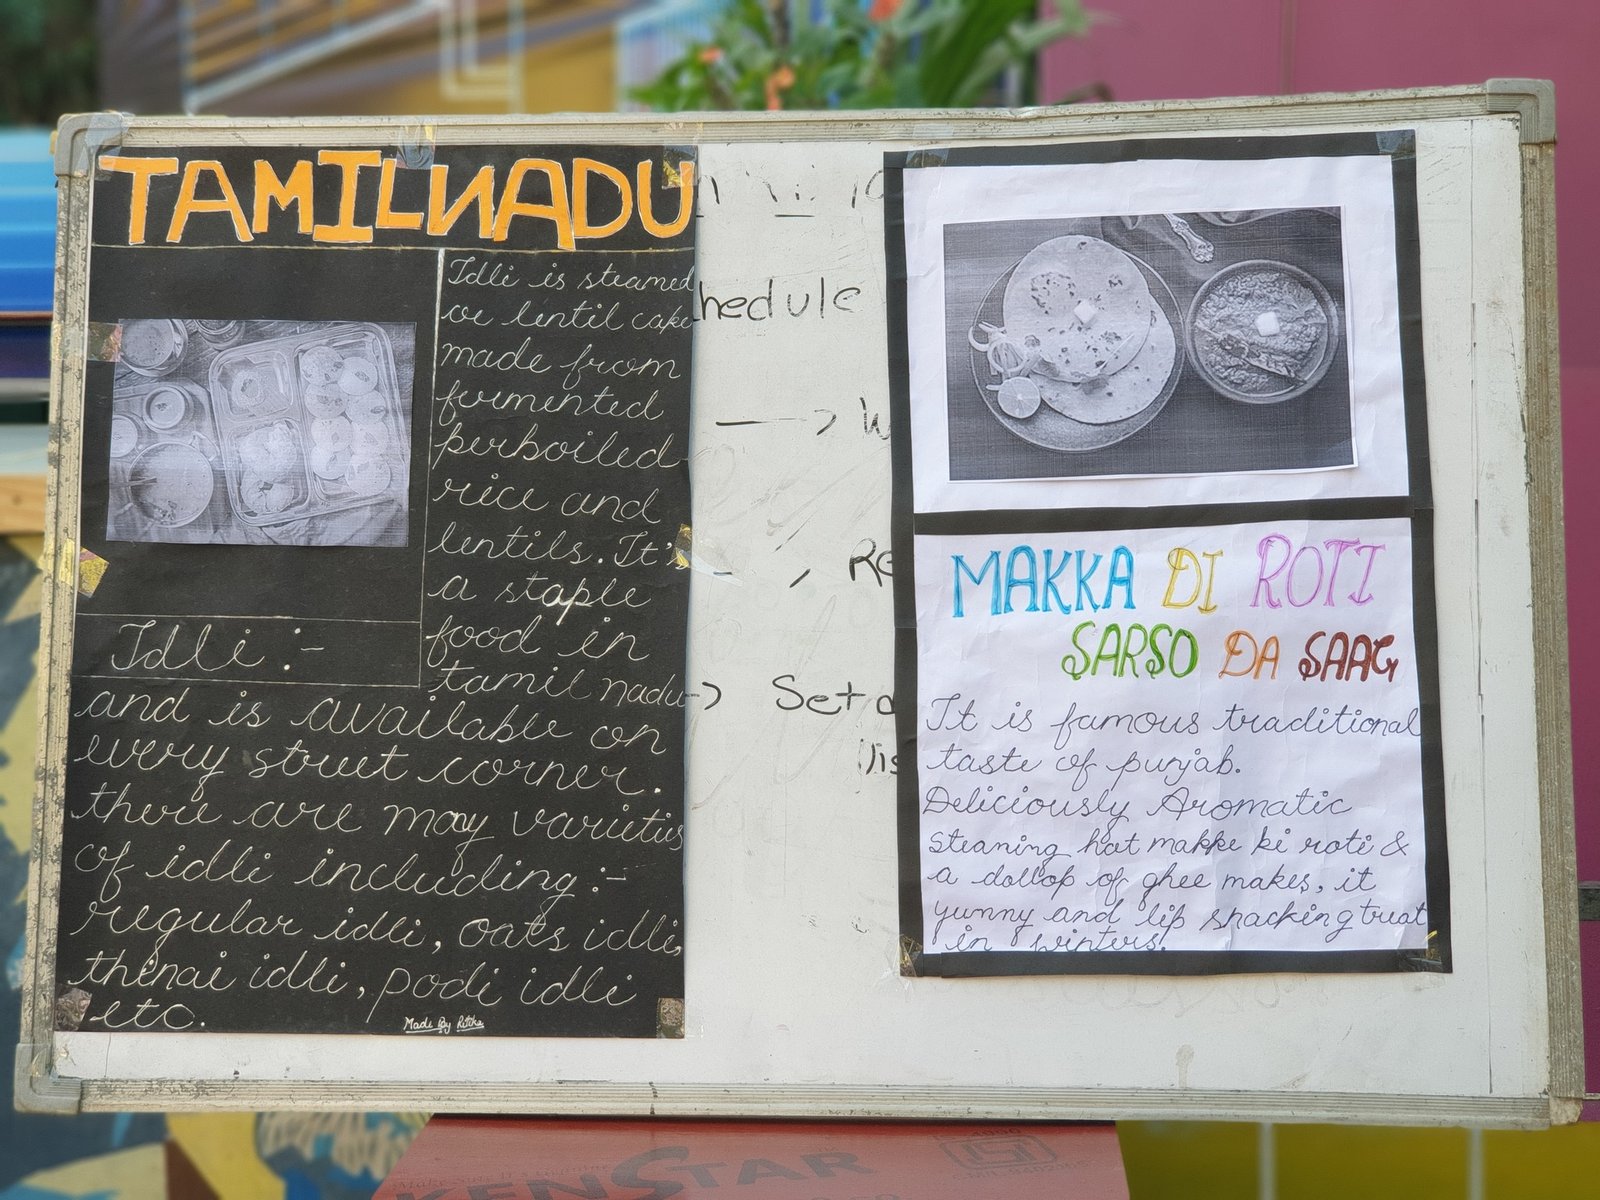 TAMILNADU
Idli is steamed
or lentil cake
made from
fermented
perboiled
rice and
lentils. It's
a staple
food in
tamil nadu
Idli :-
and is available on
every street corner.
there are many varieties
of idli including :-
regular idli, oats idli,
thinai idli, podi idli
etc.
Made By Ritika
hedule
W
Re
Set a
lis
MAKKA DI ROTI
SARSO DA SAAG
It is famous traditional
taste of punjab.
Deliciously Aromatic
steaning hot makke ki roti &
a dollop of ghee makes, it
yunny and lip snacking treat
in winters.
KENSTAR